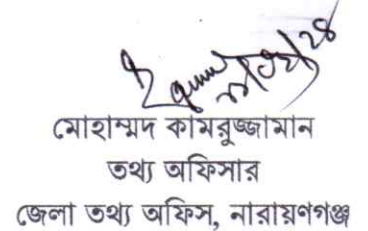 মোহাম্মদ কামরুজ্জামান
তথ্য অফিসার
জেলা তথ্য অফিস, নারায়ণগঞ্জ